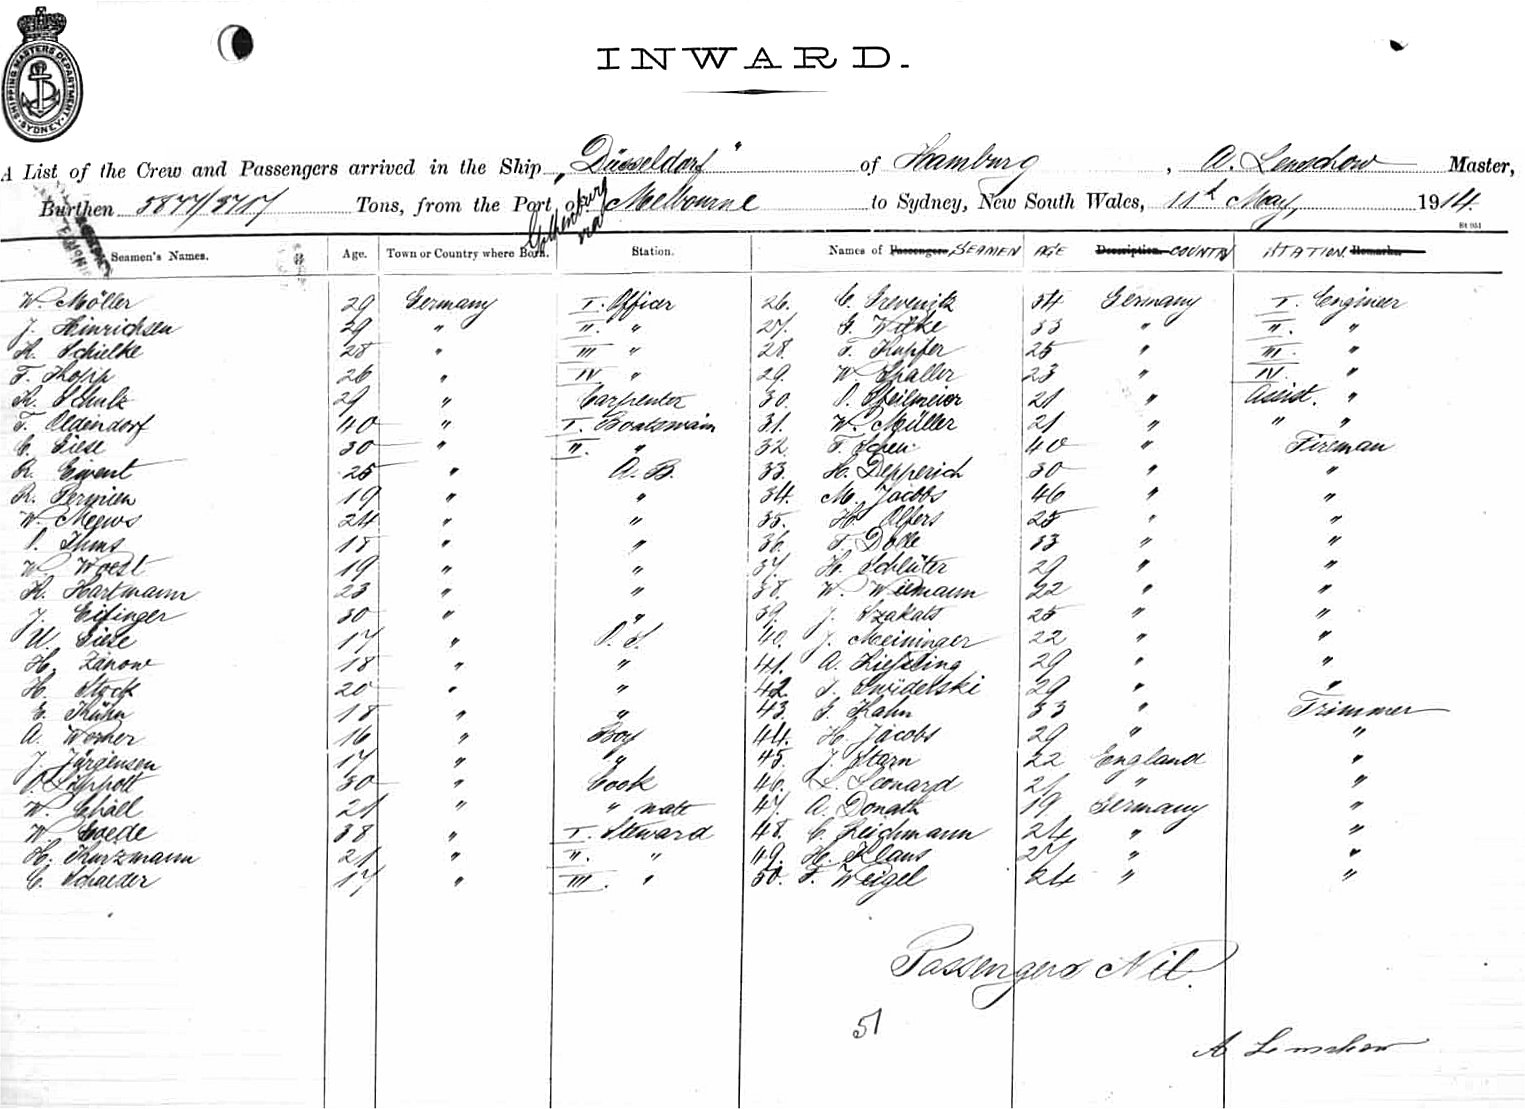 SHIPPING MASTERS DEPARTMENT. SYDNEY.
INWARD.
A List of the Crew and Passengers arrived in the Ship "Düsseldorf" of Hamburg, A. Lenschow Master,
Burthen Tons, from the Port of Gothenburg via Melbourne to Sydney, New South Wales, 11th May, 1914.
Seamen's Names. Age. Town or Country where Born. Station. Names of Passengers. SEAMEN AGE Description. COUNTRY STATION. Remarks.
W. Möller 29 Germany I. Officer 26. C. Grevenitz 54 Germany I. Engineer
J. Hinrichsen 29 " II. " 27. G. Witke 33 " II. "
K. Schielke 28 " III " 28. F. Kupfer 25 " III. "
F. Kopp 26 " IV " 29. W. 23 " IV. "
K. Schulz 29 " Carpenter 30. Pfeilmeier 21 " Assist. "
F. Oldendorf 40 " I. Boatswain 31. W. Müller 21 " " "
C. Giese 30 " II. " 32. F. Scheu 40 " Fireman
R. Ewent 25 " A. B. 33. H. Depperich 30 " "
R. Permien 19 " " 34. M. Jacobs 46 " "
W. Meews 24 " " 35. H. Alfers 25 " "
P. Thms 18 " " 36. F. Dolle 33 " "
W. Woest 19 " " 37. H. Schlüter 29 " "
K. Hartmann 23 " " 38. W. Wiemann 22 " "
J. Eifinger 30 " " 39. J. Szakats 25 " "
W. Giese 17 " O. S. 40. J. Meininger 22 " "
H. Zanow 18 " " 41. A. Kießling 29 " "
H. Stock 20 " " 42. J. Swiderski 29 " "
E. Kühn 18 " " 43. G. Kahn 33 " Trimmer
A. Worher 16 " Boy 44. H. Jacobs 29 " "
J. Jürgensen 17 " " 45. J. Starn 22 England "
P. Lippott 30 " Cook 46. L. Leonard 21 " "
W. Schall 21 " " mate 47. A. Donath 19 Germany "
W. Goede 38 " I. Steward 48. C. Reichmann 24 " "
H. Kurzmann 21 " II. " 49. H. Klaus 27 " "
C. Schaeder 17 " III. " 50. F. Weigel 24 " "
Passengers Nil.
51
A Lenschow